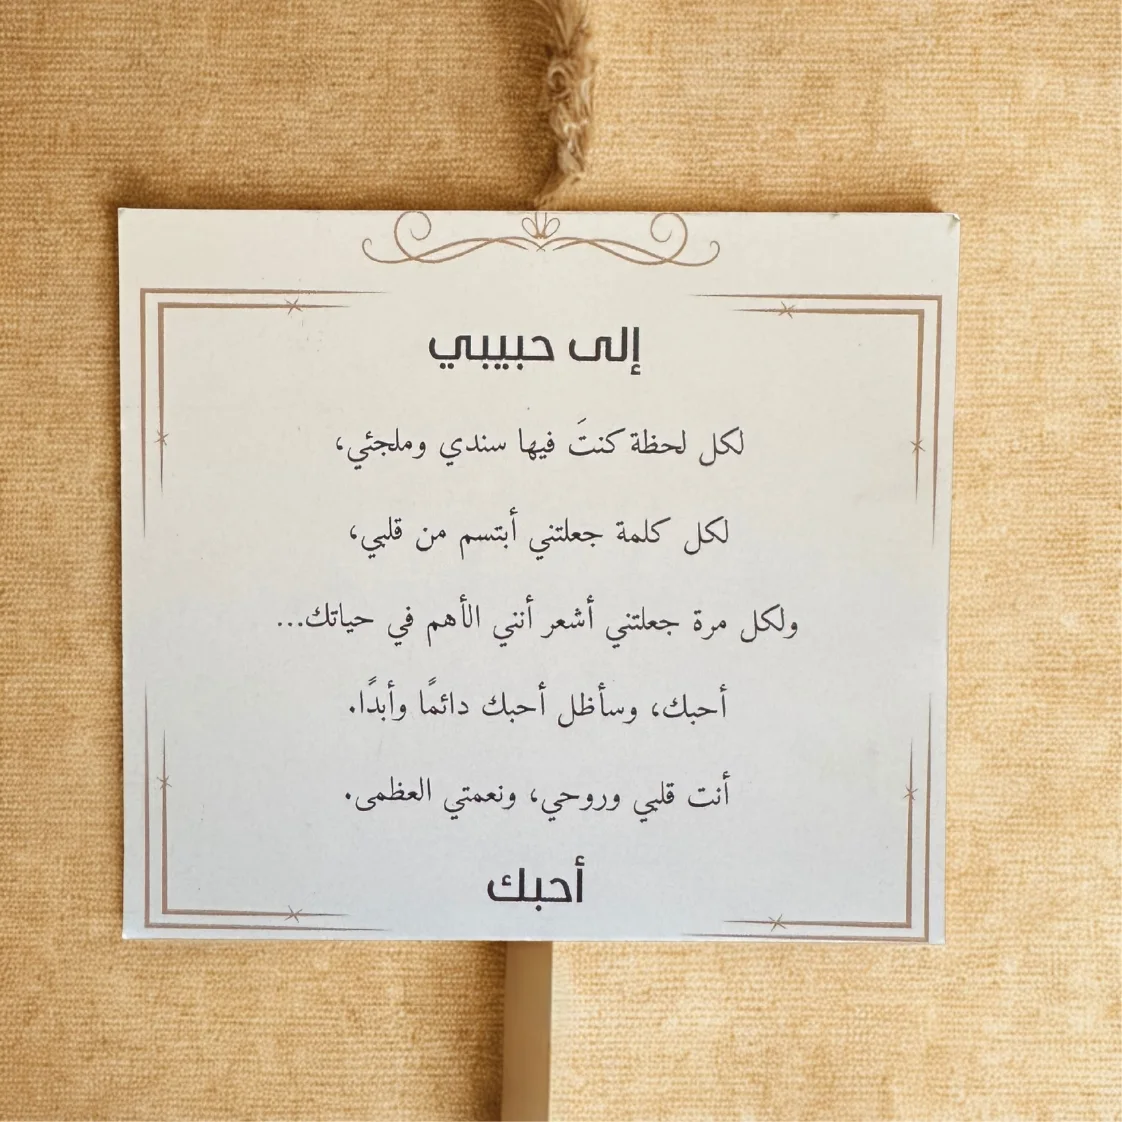 إلى حبيبي
لكل لحظة كنتَ فيها سندي وملجئي،
لكل كلمة جعلتني أبتسم من قلبي،
ولكل مرة جعلتني أشعر أنني الأهم في حياتك...
أحبك، وسأظل أحبك دائمًا وأبدًا.
أنت قلبي وروحي، ونعمتي العظمى.
أحبك